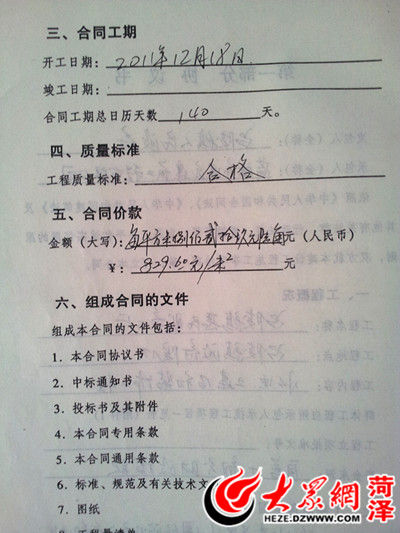 三、合同工期
开工日期: 2011年12月18日
竣工日期:
合同工期总日历天数 140 天。
四、质量标准
工程质量标准: 合格
五、合同价款
金额（大写）: 每平方米捌佰贰拾玖元陆角元（人民币）
¥: 829.60元/米² 元
六、组成合同的文件
组成本合同的文件包括:
1. 本合同协议书
2. 中标通知书
3. 投标书及其附件
4. 本合同专用条款
5. 本合同通用条款
6. 标准、规范及有关技术文
7. 图纸
大众网 菏泽
HEZE.DZWWW.COM